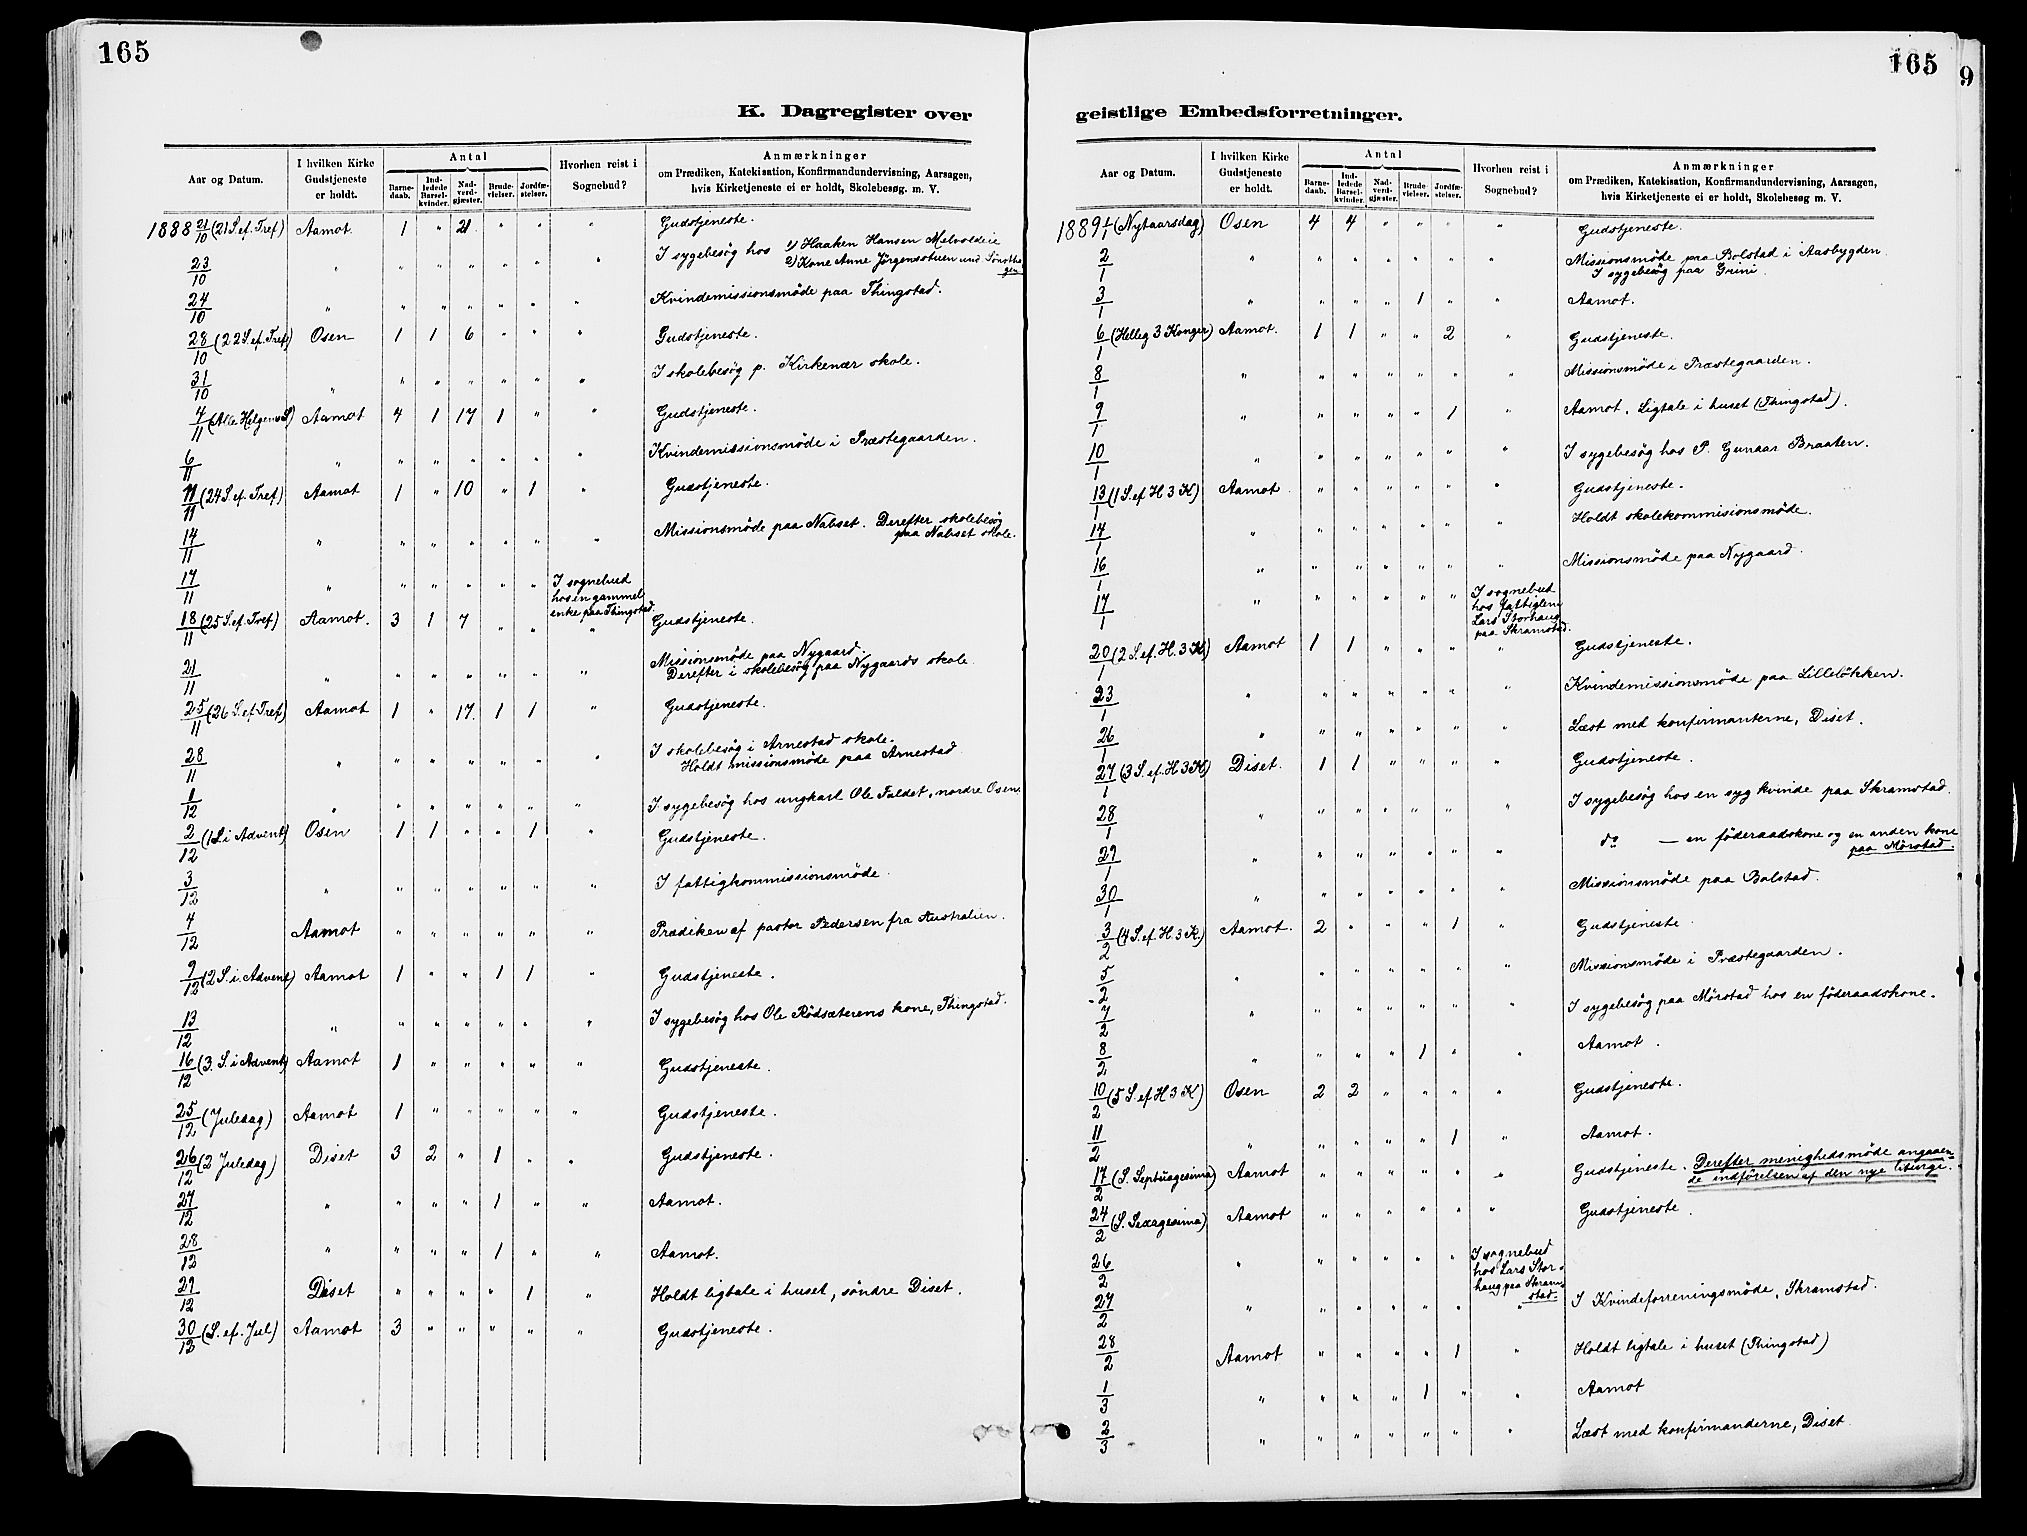 165
K. Dagregister over
Aar og Datum. | I hvilken Kirke Gudstjeneste er holdt. | Antal | Barnedaab. | Indledede Barselkvinder. | Nadverdgjæster. | Brudevielser. | Jordfæstelser. | Hvorhen reist i Sognebud? | Anmærkninger om Prædiken, Katekisation, Konfirmandundervisning, Aarsagen, hvis Kirketjeneste ei er holdt, Skolebesøg. m. V.
1888 21/10 (21 S. ef. Tref) | Aamot. | 1 | " | 21. | " | " | " | Gudstjeneste.
23/10 | " | " | " | " | " | " | " | I sygebesög hos 1) Haaken Hansen
2) Kone Anne
24/10 | " | " | " | " | " | " | " | Kvindemissionsmöde paa Thingstad.
28/10 (22 S. ef. Tref) | Osen | 1 | 1 | 6 | " | " | " | Gudstjeneste.
31/10 | " | " | " | " | " | " | " | I skolebesög p. Kirkenær skole.
4/11 (Alle Helgens S) | Aamot | 4 | 1 | 17 | 1 | " | " | Gudstjeneste.
6/11 | " | " | " | " | " | " | " | Kvindemissionsmöde i Præstegaarden.
11/11 (24 S. ef. Tref) | Aamot | 1 | " | 10 | " | 1 | " | Gudstjeneste.
14/11 | " | " | " | " | " | " | " | Missionsmöde paa Nabset. Derefter skolebesög
paa Nabset skole.
17/11 | " | " | " | " | " | " | I sognebud
hos en gammel
enke paa Thingstad.
18/11 (25 S. ef. Tref) | Aamot. | 3 | 1 | 7 | " | " | " | Gudstjeneste.
21/11 | " | " | " | " | " | " | " | Missionsmöde paa Nygaard.
Derefter i skolebesög paa Nygaards skole
25/11 (26 S. ef. Tref) | Aamot | 1 | " | 17. | 1 | 1 | " | Gudstjeneste.
28/11 | " | " | " | " | " | " | " | I skolebesög i Arnestad skole.
Holdt missionsmöde paa Arnestad
1/12 | " | " | " | " | " | " | " | I sygebesög hos ungkarl Ole Faldet, nordre Osen.
2/12 (1 S. i Advent) | Osen | 1 | 1 | " | " | 1 | " | Gudstjeneste.
3/12 | " | " | " | " | " | " | " | I fattigkommissionsmöde.
4/12 | Aamot | " | " | " | " | " | " | Prædiken af pastor Pedersen fra Australien.
9/12 (2 S. i Advent) | Aamot | 1 | " | " | 1 | 1 | " | Gudstjeneste.
13/12 | " | " | " | " | " | " | " | I sygebesög hos Ole Rödsæterens kone, Thingstad.
16/12 (3. S. i Advent) | Aamot | 1 | " | " | " | " | " | Gudstjeneste.
25/12 (Juledag) | Aamot | 1 | " | " | " | " | " | Gudstjeneste.
26/12 (2 Juledag) | Diset | 3 | 2 | " | 1 | " | " | Gudstjeneste.
27/12 | " | " | " | " | 1 | " | " | Aamot.
28/12 | " | " | " | " | 1 | " | " | Aamot.
29/12 | Diset | " | " | " | " | 1 | " | Holdt ligtale i huset, söndre Diset.
30/12 (S. ef. Jul) | Aamot | 3 | " | " | " | " | " | Gudstjeneste.
165
9
geistlige Embedsforretninger.
Aar og Datum. | I hvilken Kirke Gudstjeneste er holdt. | Antal | Barnedaab. | Indledede Barselkvinder. | Nadverdgjæster. | Brudevielser. | Jordfæstelser. | Hvorhen reist i Sognebud? | Anmærkninger om Prædiken, Katekisation, Konfirmandundervisning, Aarsagen, hvis Kirketjeneste ei er holdt, Skolebesøg m. V.
1889 1/1 (Nytaarsdag) | Osen | 4 | 4 | " | " | " | " | Gudstjeneste.
2/1 | " | " | " | " | " | " | " | Missionsmöde paa Bolstad i Aasbygden
I sygebesög paa Grini.
3/1 | " | " | " | " | 1 | " | " | Aamot.
6/1 (Helleg 3 Konger) | Aamot. | 1 | 1 | " | " | 2 | " | Gudstjeneste.
8/1 | " | " | " | " | " | " | " | Missionsmöde i Præstegaarden.
9/1 | " | " | " | " | " | 1 | " | Aamot. Ligtale i huset (Thingstad).
10/1 | " | " | " | " | " | " | " | I sygebesög hos P. Gunaar Braaten.
13/1 (1 S. ef H 3 K) | Aamot. | " | " | " | " | " | " | Gudstjeneste.
14/1 | " | " | " | " | " | " | " | Holdt skolekommisionsmöde.
16/1 | " | " | " | " | " | " | " | Missionsmöde paa Nygaard.
17/1 | " | " | " | " | " | " | I sognebud
hos fattiglem
Lars Storhaug
paa Skramstad.
20/1 (2 S. ef. H. 3 K) | Aamot | 1 | 1 | " | " | " | " | Gudstjeneste.
23/1 | " | " | " | " | " | " | " | Kvindemissionsmöde paa Lillelökken.
26/1 | " | " | " | " | " | " | " | Læst med konfirmanterne, Diset.
27/1 (3 S. ef. H 3 K) | Diset. | 1 | 1 | " | " | " | " | Gudstjeneste.
28/1 | " | " | " | " | " | " | " | I sygebesög hos en syg kvinde paa Skramstad.
29/1 | " | " | " | " | " | " | " | do — en föderaadskone og en anden kone
paa Mörstad.
30/1 | " | " | " | " | " | " | " | Missionsmöde paa Bolstad.
3/2 (4 S. ef. H. 3 K.) | Aamot. | 2 | " | " | " | 1 | " | Gudstjeneste
5/2 | " | " | " | " | " | " | " | Missionsmöde i Præstegaarden.
7/2 | " | " | " | " | " | " | " | I sygebesög paa Mörstad hos en föderaadskone.
8/2 | " | " | " | " | 1 | " | " | Aamot.
10/2 (5 S. ef H 3 K) | Osen | 2 | 2 | " | " | " | " | Gudstjeneste.
11/2 | " | " | " | " | " | 1 | " | Aamot.
17/2 (S. Septuagesima) | Aamot | " | " | " | " | " | " | Gudstjeneste. Derefter menighedsmöde angaaen-
de indförelsen af den nye liturgi.
24/2 (S. Sexagesima) | Aamot | " | " | " | " | " | " | Gudstjeneste.
26/2 | " | " | " | " | " | " | I sognebud
hos Lars Stor-
haug paa Skram-
stad.
27/2 | " | " | " | " | " | " | " | I Kvindeforreningsmöde, Skramstad.
28/2 | Aamot | " | " | " | " | 1 | " | Holdt ligtale i huset (Thingstad)
1/3 | " | " | " | " | 1 | " | " | Aamot
2/3 | " | " | " | " | " | " | " | Læst med konfirmanderne, Diset.